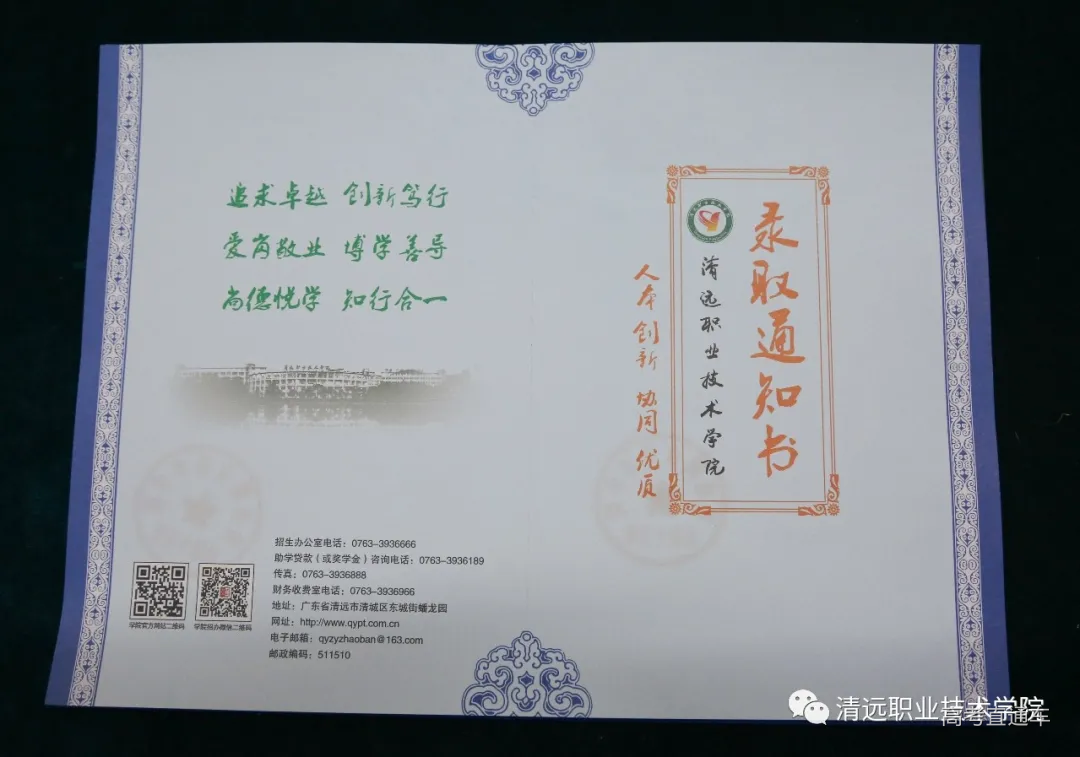 追求卓越 创新笃行
爱岗敬业 博学善导
尚德悦学 知行合一
招生办公室电话：0763-3936666
助学贷款（或奖学金）咨询电话：0763-3936189
传真：0763-3936888
财务收费室电话：0763-3936966
地址：广东省清远市清城区东城街蟠龙园
网址：http://www.qypt.com.cn
电子邮箱：qyzyzhaoban@163.com
邮政编码：511510
学院官方网站二维码
学院招办微信二维码
录取通知书
清远职业技术学院
人本 创新 协同 优质
清远职业技术学院
高考直通车